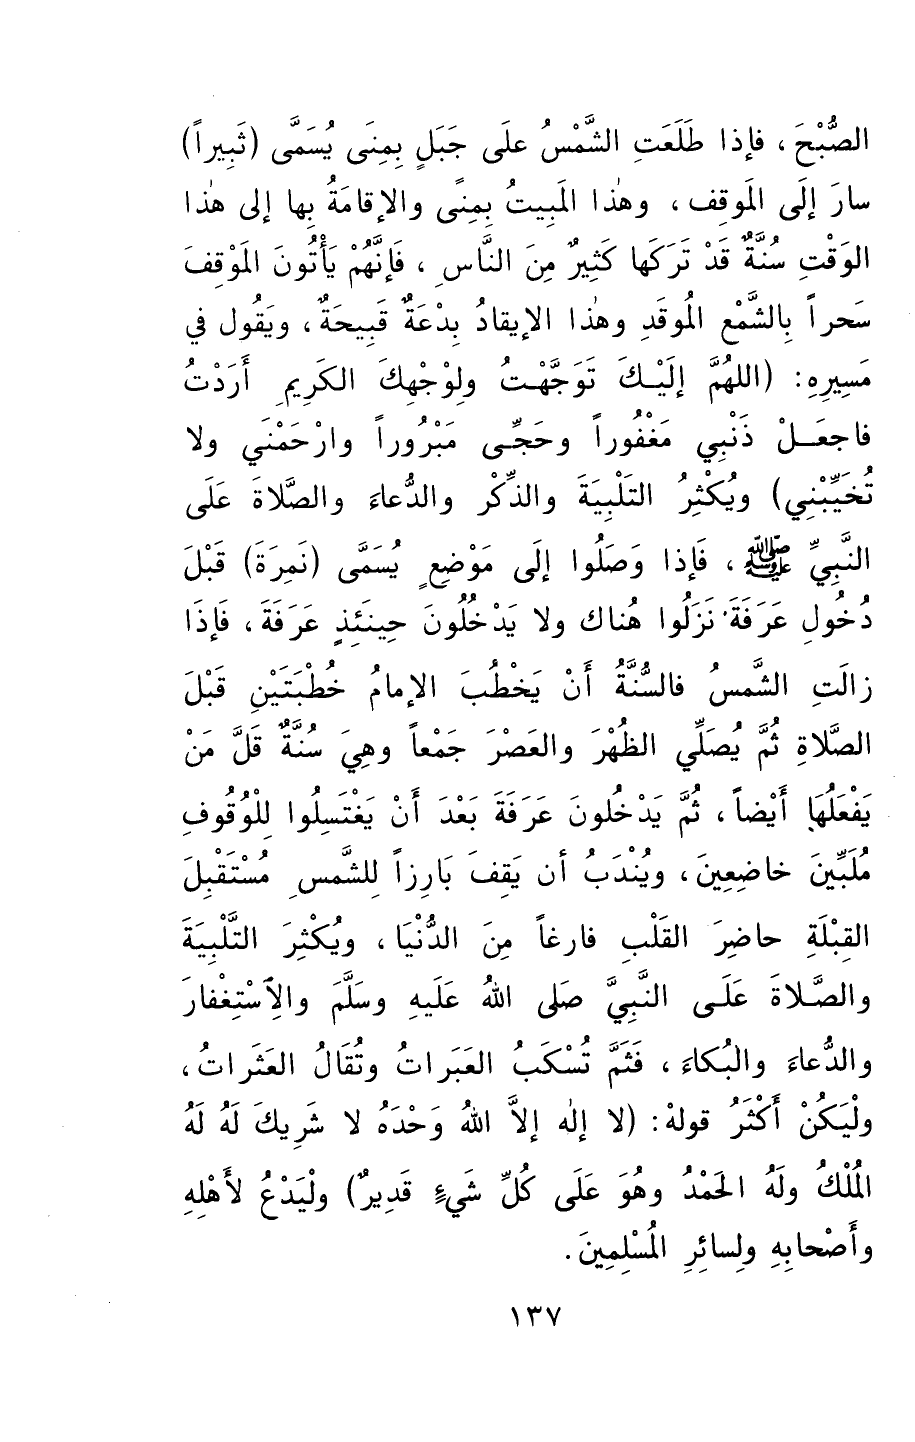 الصُّبْحَ ، فإذا طَلَعَتِ الشَّمْسُ علَى جَبَلٍ بِمِنَى يُسَمَّى (ثَبِيراً)
سارَ إلَى المَوقِف ، وهٰذا المَبِيتُ بِمِنًى والإقامَةُ بِها إلى هٰذا
الوَقْتِ سُنَّةٌ قَدْ تَرَكَها كَثِيرٌ مِنَ النَّاسِ ، فَإنَّهُمْ يَأْتُونَ المَوْقِفَ
سَحراً بِالشَّمْعِ المُوقَدِ وهٰذا الإيقادُ بِدْعَةٌ قَبِيحَةٌ ، ويَقُول في
مَسِيرِهِ : (اللهُمَّ إلَيْكَ تَوَجَّهْتُ ولِوَجْهِكَ الكَرِيمِ أَرَدْتُ
فاجعَلْ ذَنْبِي مَغْفُوراً وحَجِّى مَبْرُوراً وارْحَمْنَي ولا
تُخَيِّبْنِي) ويُكْثِرُ التَلْبِيَةَ والذِّكْر والدُّعاءَ والصَّلاةَ عَلَى
النَّبِيِّ ﷺ ، فَإذا وَصَلُوا إلَى مَوْضِعٍ يُسَمَّى (نَمِرَةَ) قَبْلَ
دُخُولِ عَرَفَةَ نَزَلُوا هُناك ولا يَدْخُلُونَ حِينَئِذٍ عَرَفَةَ ، فَإذَا
زالَتِ الشَّمسُ فالسُّنَّةُ أَنْ يَخْطُبَ الإمامُ خُطْبَتَيْنِ قَبْلَ
الصَّلاةِ ثُمَّ يُصَلِّي الظُهْرَ والعَصْرَ جَمْعاً وهِيَ سُنَّةٌ قَلَّ مَنْ
يَفْعَلُهَا أَيْضاً ، ثُمَّ يَدْخُلُونَ عَرَفَةَ بَعْدَ أَنْ يَغْتَسِلُوا لِلْوُقُوفِ
مُلَبِّينَ خاضِعِينَ ، ويُنْدَبُ أن يَقِفَ بَارِزاً لِلشَّمسِ مُسْتَقْبِلَ
القِبْلَةِ حاضِرَ القَلْبِ فارغاً مِنَ الدُّنْيَا ، ويُكْثِرَ التَّلْبِيَةَ
والصَّلاةَ عَلَى النَّبِيَّ صَلى اللهُ عَلَيهِ وسَلَّمَ والِاسْتِغْفارَ
والدُّعاءَ والبُكاءَ ، فَثَمَّ تُسْكَبُ العَبَراتُ وتُقَالُ العَثَراتُ ،
ولْيَكُنْ أَكْثَرُ قولهْ : (لا إلٰه إلاَّ اللهُ وَحْدَهُ لا شَرِيكَ لَهُ لَهُ
المُلْكُ ولَهُ الحَمْدُ وهُوَ عَلَى كُلِّ شَيءٍ قَدِيرٌ) ولْيَدْعُ لأَهْلِهِ
وأَصْحابِهِ ولِسائِرِ المُسْلِمِينَ .
١٣٧